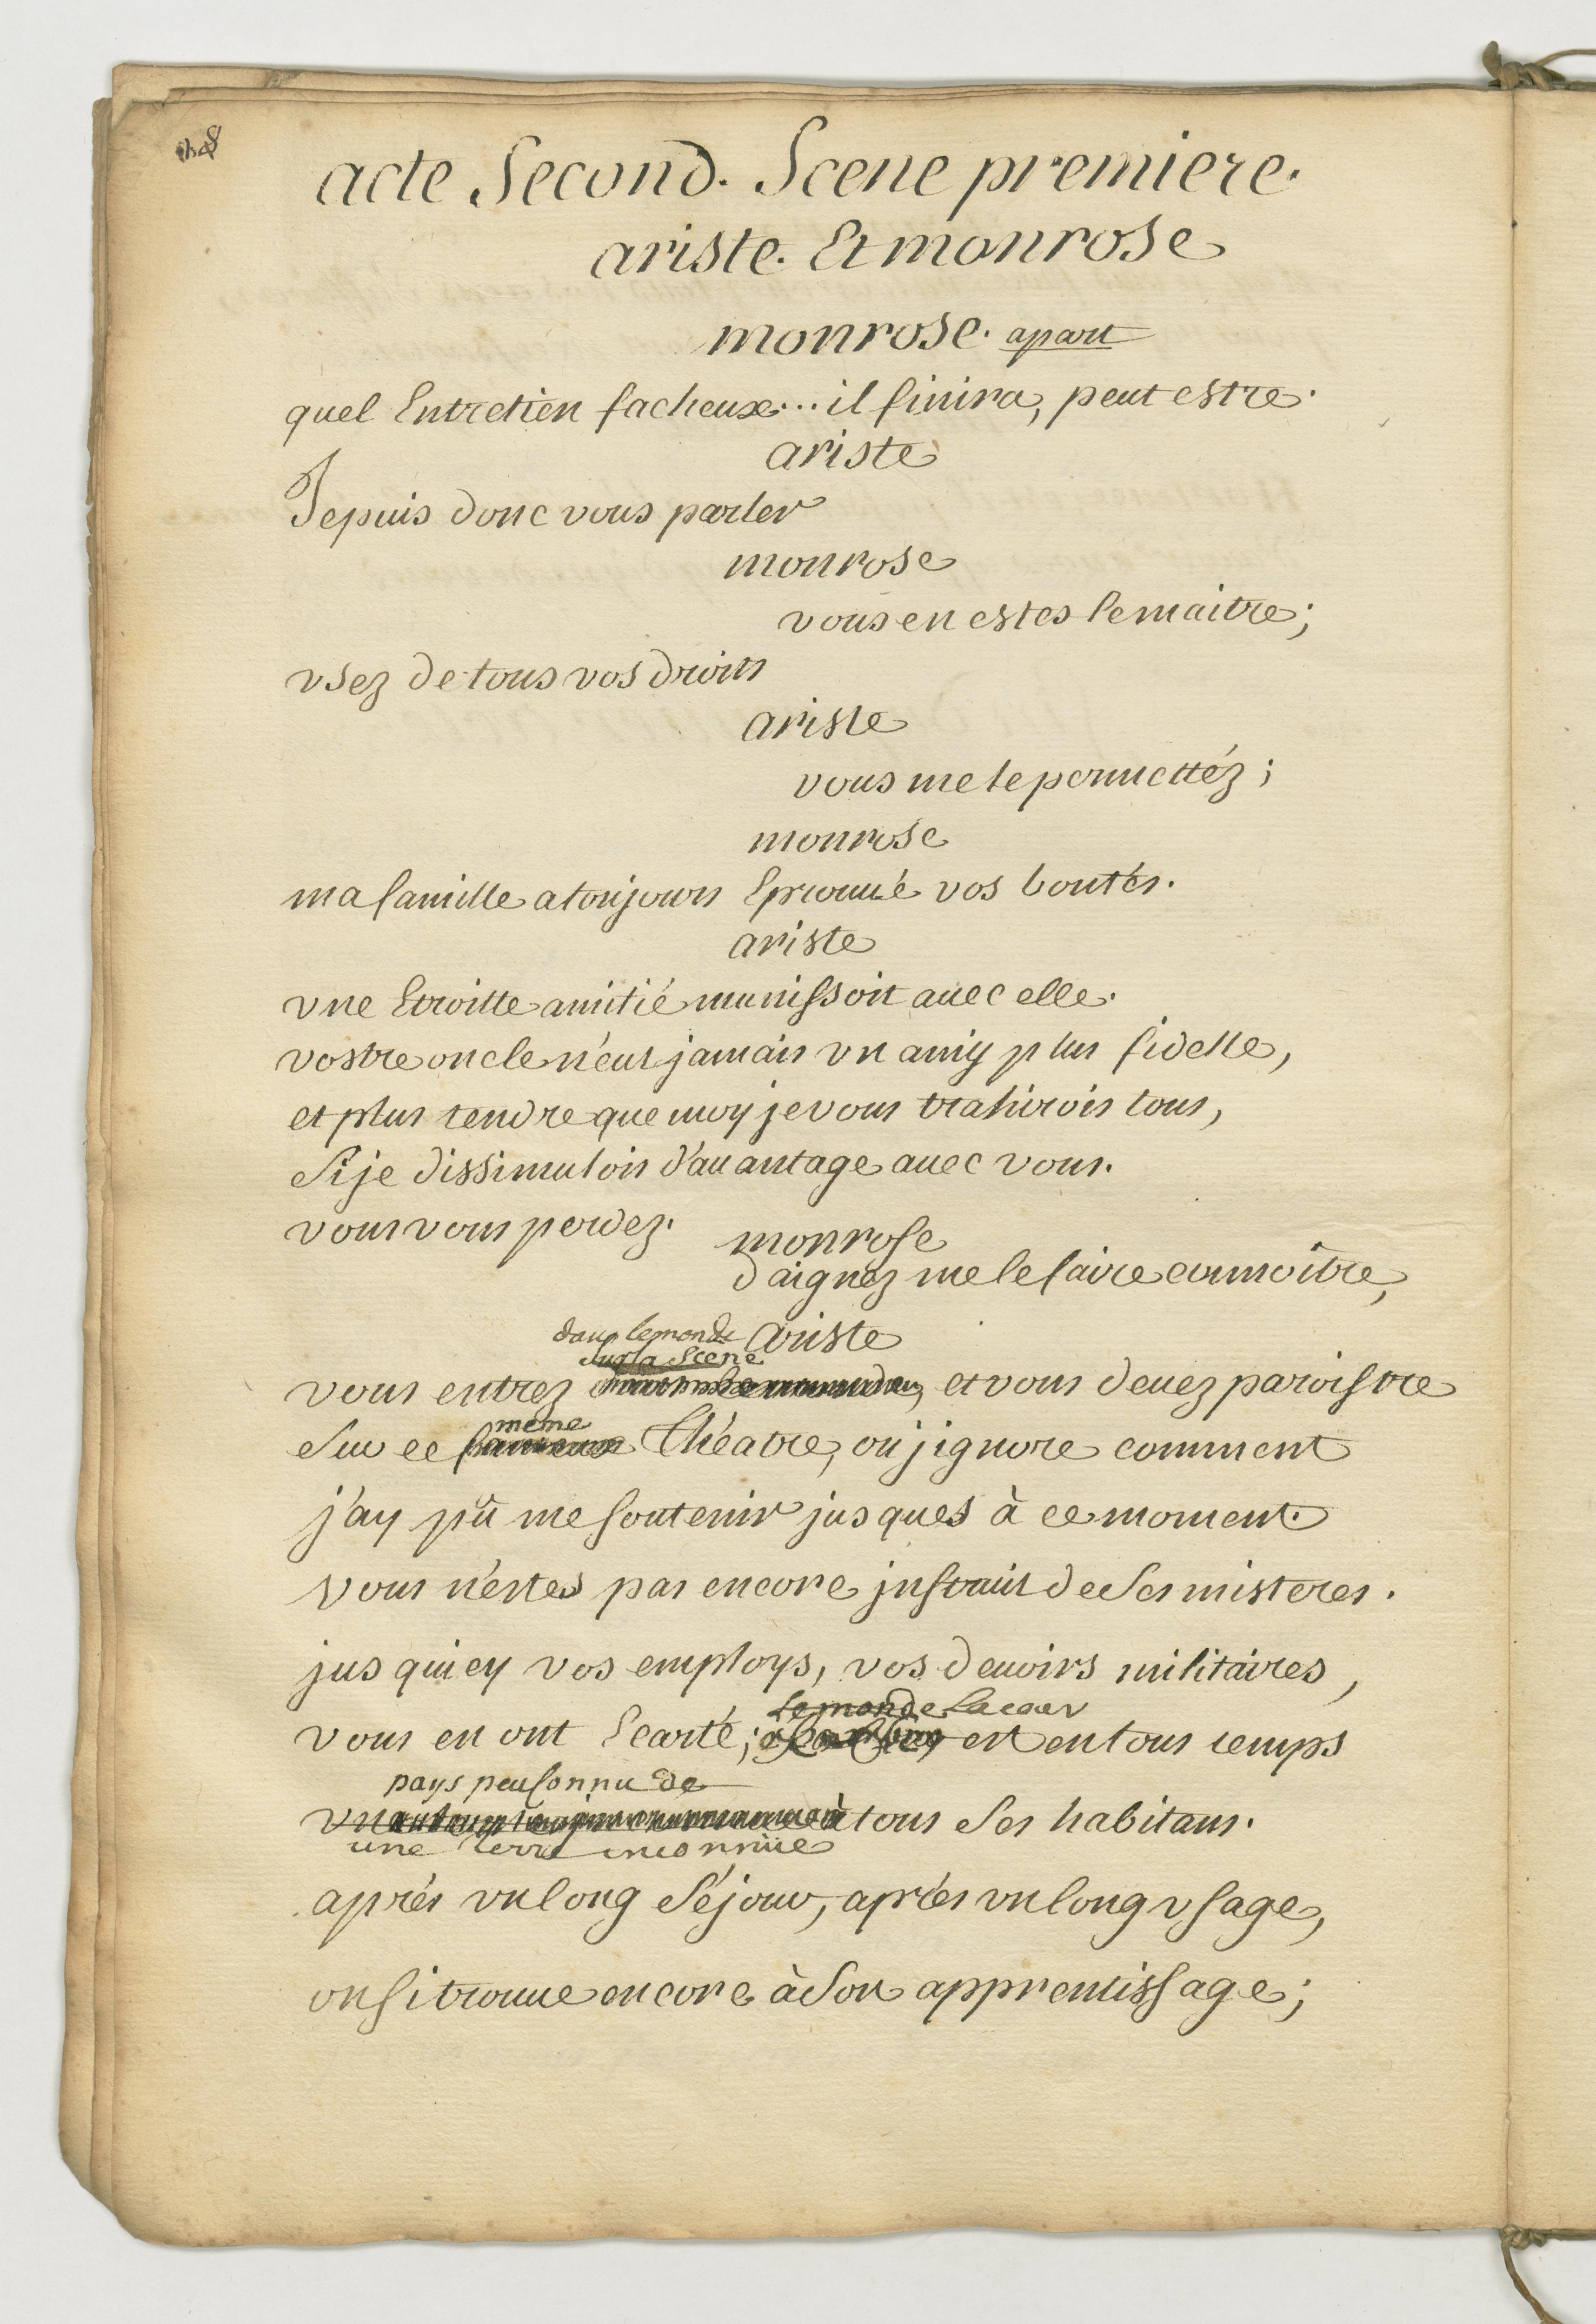 acte Second. Scene premiere.
ariste. Et monrose
monrose. apart
quel Entretien facheux... il finira, peut estre.
ariste
Je puis donc vous parler
monrose
vous en estes le maitre;
usez de tous vos droits
ariste
vous me le permettéz;
monrose
ma famille a toujours Eprouué vos bontés.
ariste
vne Etroitte amitié munissoit auec elle.
vostre oncle n'eut jamais vn amy plus fidelle,
et plus tendre que moy je vous trahirois tous,
Si je dissimulois d'auantage auec vous.
vous vous perdez.
monrose
daignez me le faire connoitre,
ariste
dans le monde
Sur la Scene
vous entrez et vous deuez paroistre
même
Sur ce fameux Théatre, ou j'ignore comment
j'ay pû me soutenir jusques à ce moment.
vous n'estes pas encore jnstruit de Ses misteres.
jusqu'icy vos employs, vos deuoirs militaires,
le monde la cour
vous en ont Ecarté; est en tous temps
pays peu Connu de
vn à tous Ses habitans.
une terre inconnüe
aprés vn long Séjour, aprés vn long vsage,
on s'i trouue encore à Son apprentissage;